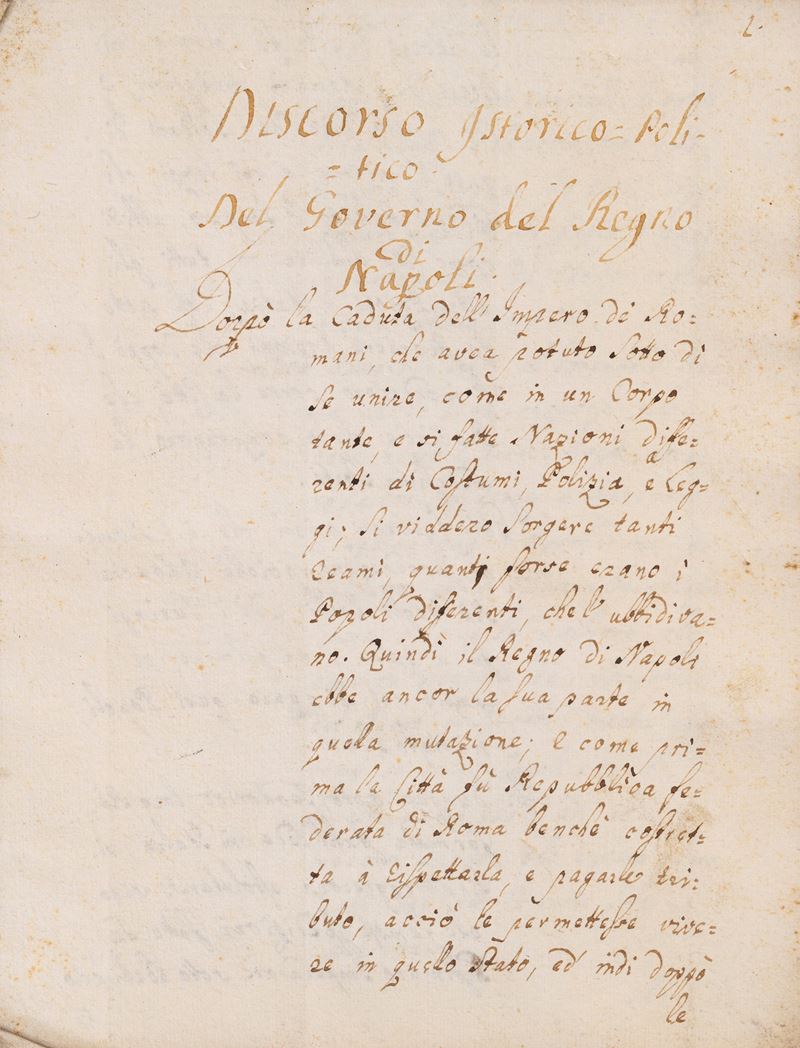 1.
Discorso Istorico=Poli-
=tico.
Del Governo del Regno
di
Napoli.
Doppò la Caduta dell'Impero de Ro=
mani, che avea potuto sotto di
se unire, come in un Corpo
tante, e si fatte Nazioni diffe=
renti di Costumi, Polizia, e Leg=
gi; si viddero sorgere tanti
Reami, quanti forse erano i
Popoli differenti, che l'ubbidiva=
no. Quindi il Regno di Napoli
ebbe ancor la sua parte in
quella mutazione; e come pri=
ma la Città fù Repubblica fe=
derata di Roma benchè costret=
ta à rispettarla, e pagarle tri=
buto, acciò le permettesse vive=
re in quello stato, ed'indi doppò
le